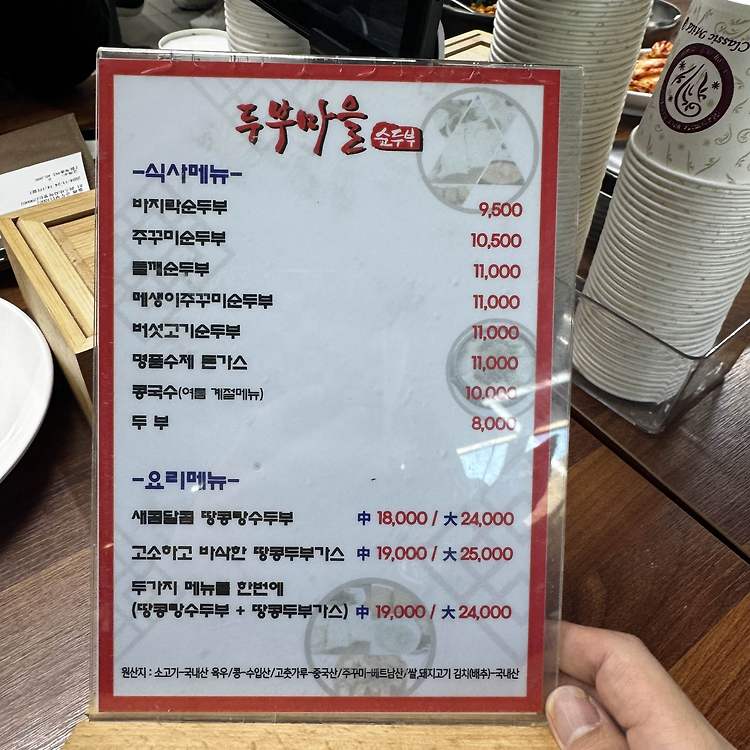 두부마을 순두부
-식사메뉴-
바지락순두부 9,500
주꾸미순두부 10,500
들깨순두부 11,000
매생이주꾸미순두부 11,000
버섯고기순두부 11,000
명품수제 돈가스 11,000
콩국수(여름 계절메뉴) 10,000
두 부 8,000
-요리메뉴-
새콤달콤 땅콩탕수두부 中 18,000 / 大 24,000
고소하고 바삭한 땅콩두부가스 中 19,000 / 大 25,000
두가지 메뉴를 한번에
(땅콩탕수두부 + 땅콩두부가스) 中 19,000 / 大 24,000
원산지 : 소고기-국내산 육우/콩-수입산/고춧가루-중국산/주꾸미-베트남산/쌀,돼지고기 김치(배추)-국내산
Classic